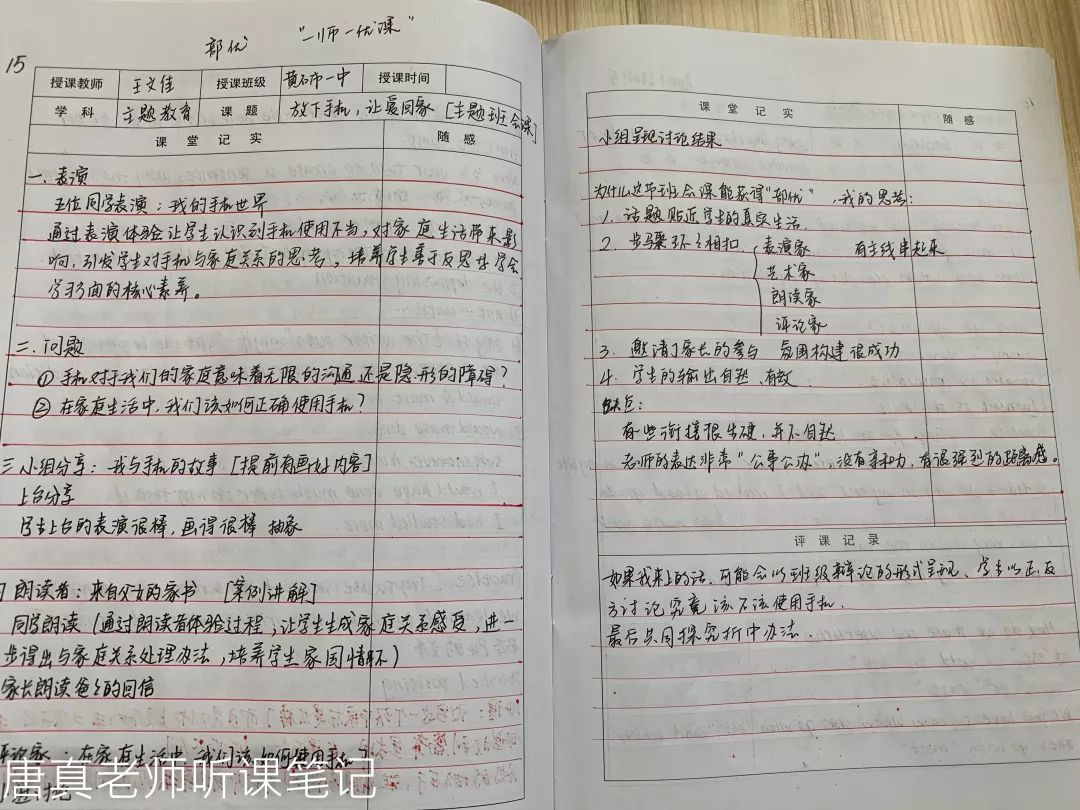 15
部优 "一师一优课"
授课教师 王文佳 授课班级 黄石市一中 授课时间
学科 主题教育 课题 放下手机，让爱回家 [主题班会课]
课堂记实 随感
一. 表演
五位同学表演：我的手机世界
通过表演体验让学生认识到手机使用不当，对家庭生活带来影
响，引发学生对手机与家庭关系的思考，培养学生善于反思 学会
学习方面的核心素养。
二. 问题
① 手机对于我们的家庭意味着无限的沟通还是隐形的障碍？
② 在家庭生活中，我们该如何正确使用手机？
三 小组分享：我与手机的故事 [提前有画好内容]
上台分享
学生上台的表演很棒，画得很棒 抽象
朗读者：来自父方的家书 [案例讲解]
同学朗读（通过朗读者体验过程，让学生生成家庭关系感受，进一
步得出与家庭关系处理办法，培养学生家国情怀）
家长朗读爸爸的回信
评论家：在家庭生活中，我们该如何使用手机？
小组讨论
唐真老师听课笔记
课堂记实 随感
小组呈现讨论结果
为什么这节班会课能获得"部优"，我的思考：
1. 话题贴近学生的真实生活.
2. 步骤环环相扣 表演家 有主线串起来
艺术家
朗读家
评论家
3. 邀请了家长的参与 氛围构建很成功
4. 学生的输出自然、有效.
缺点：
有些衔接很生硬，并不自然
老师的表达非常"公事公办"，没有亲和力，有很强烈的距离感。
评课记录
如果我来上的话，可能会以班级辩论的形式呈现，学生以正反
方讨论究竟该不该使用手机.
最后共同探究折中办法.